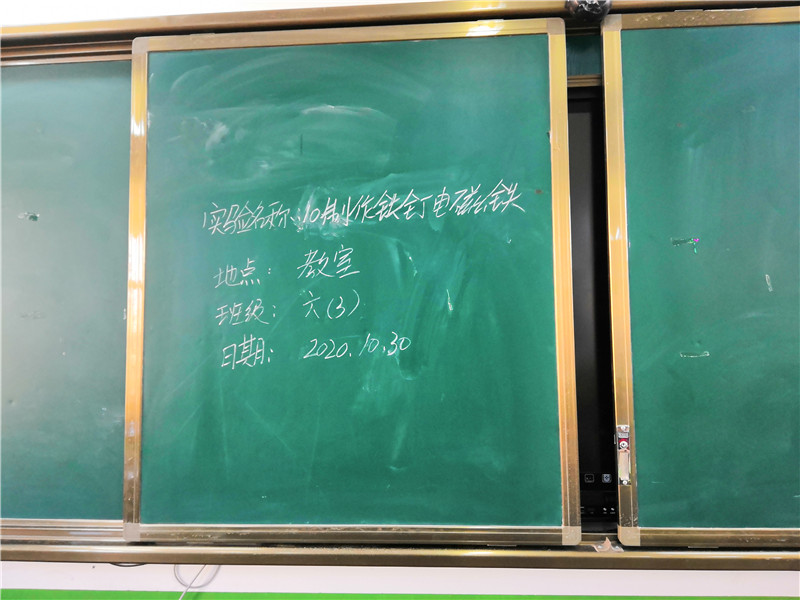 实验名称:10制作铁钉电磁铁
地点：教室
班级：六(3)
日期：2020.10.30